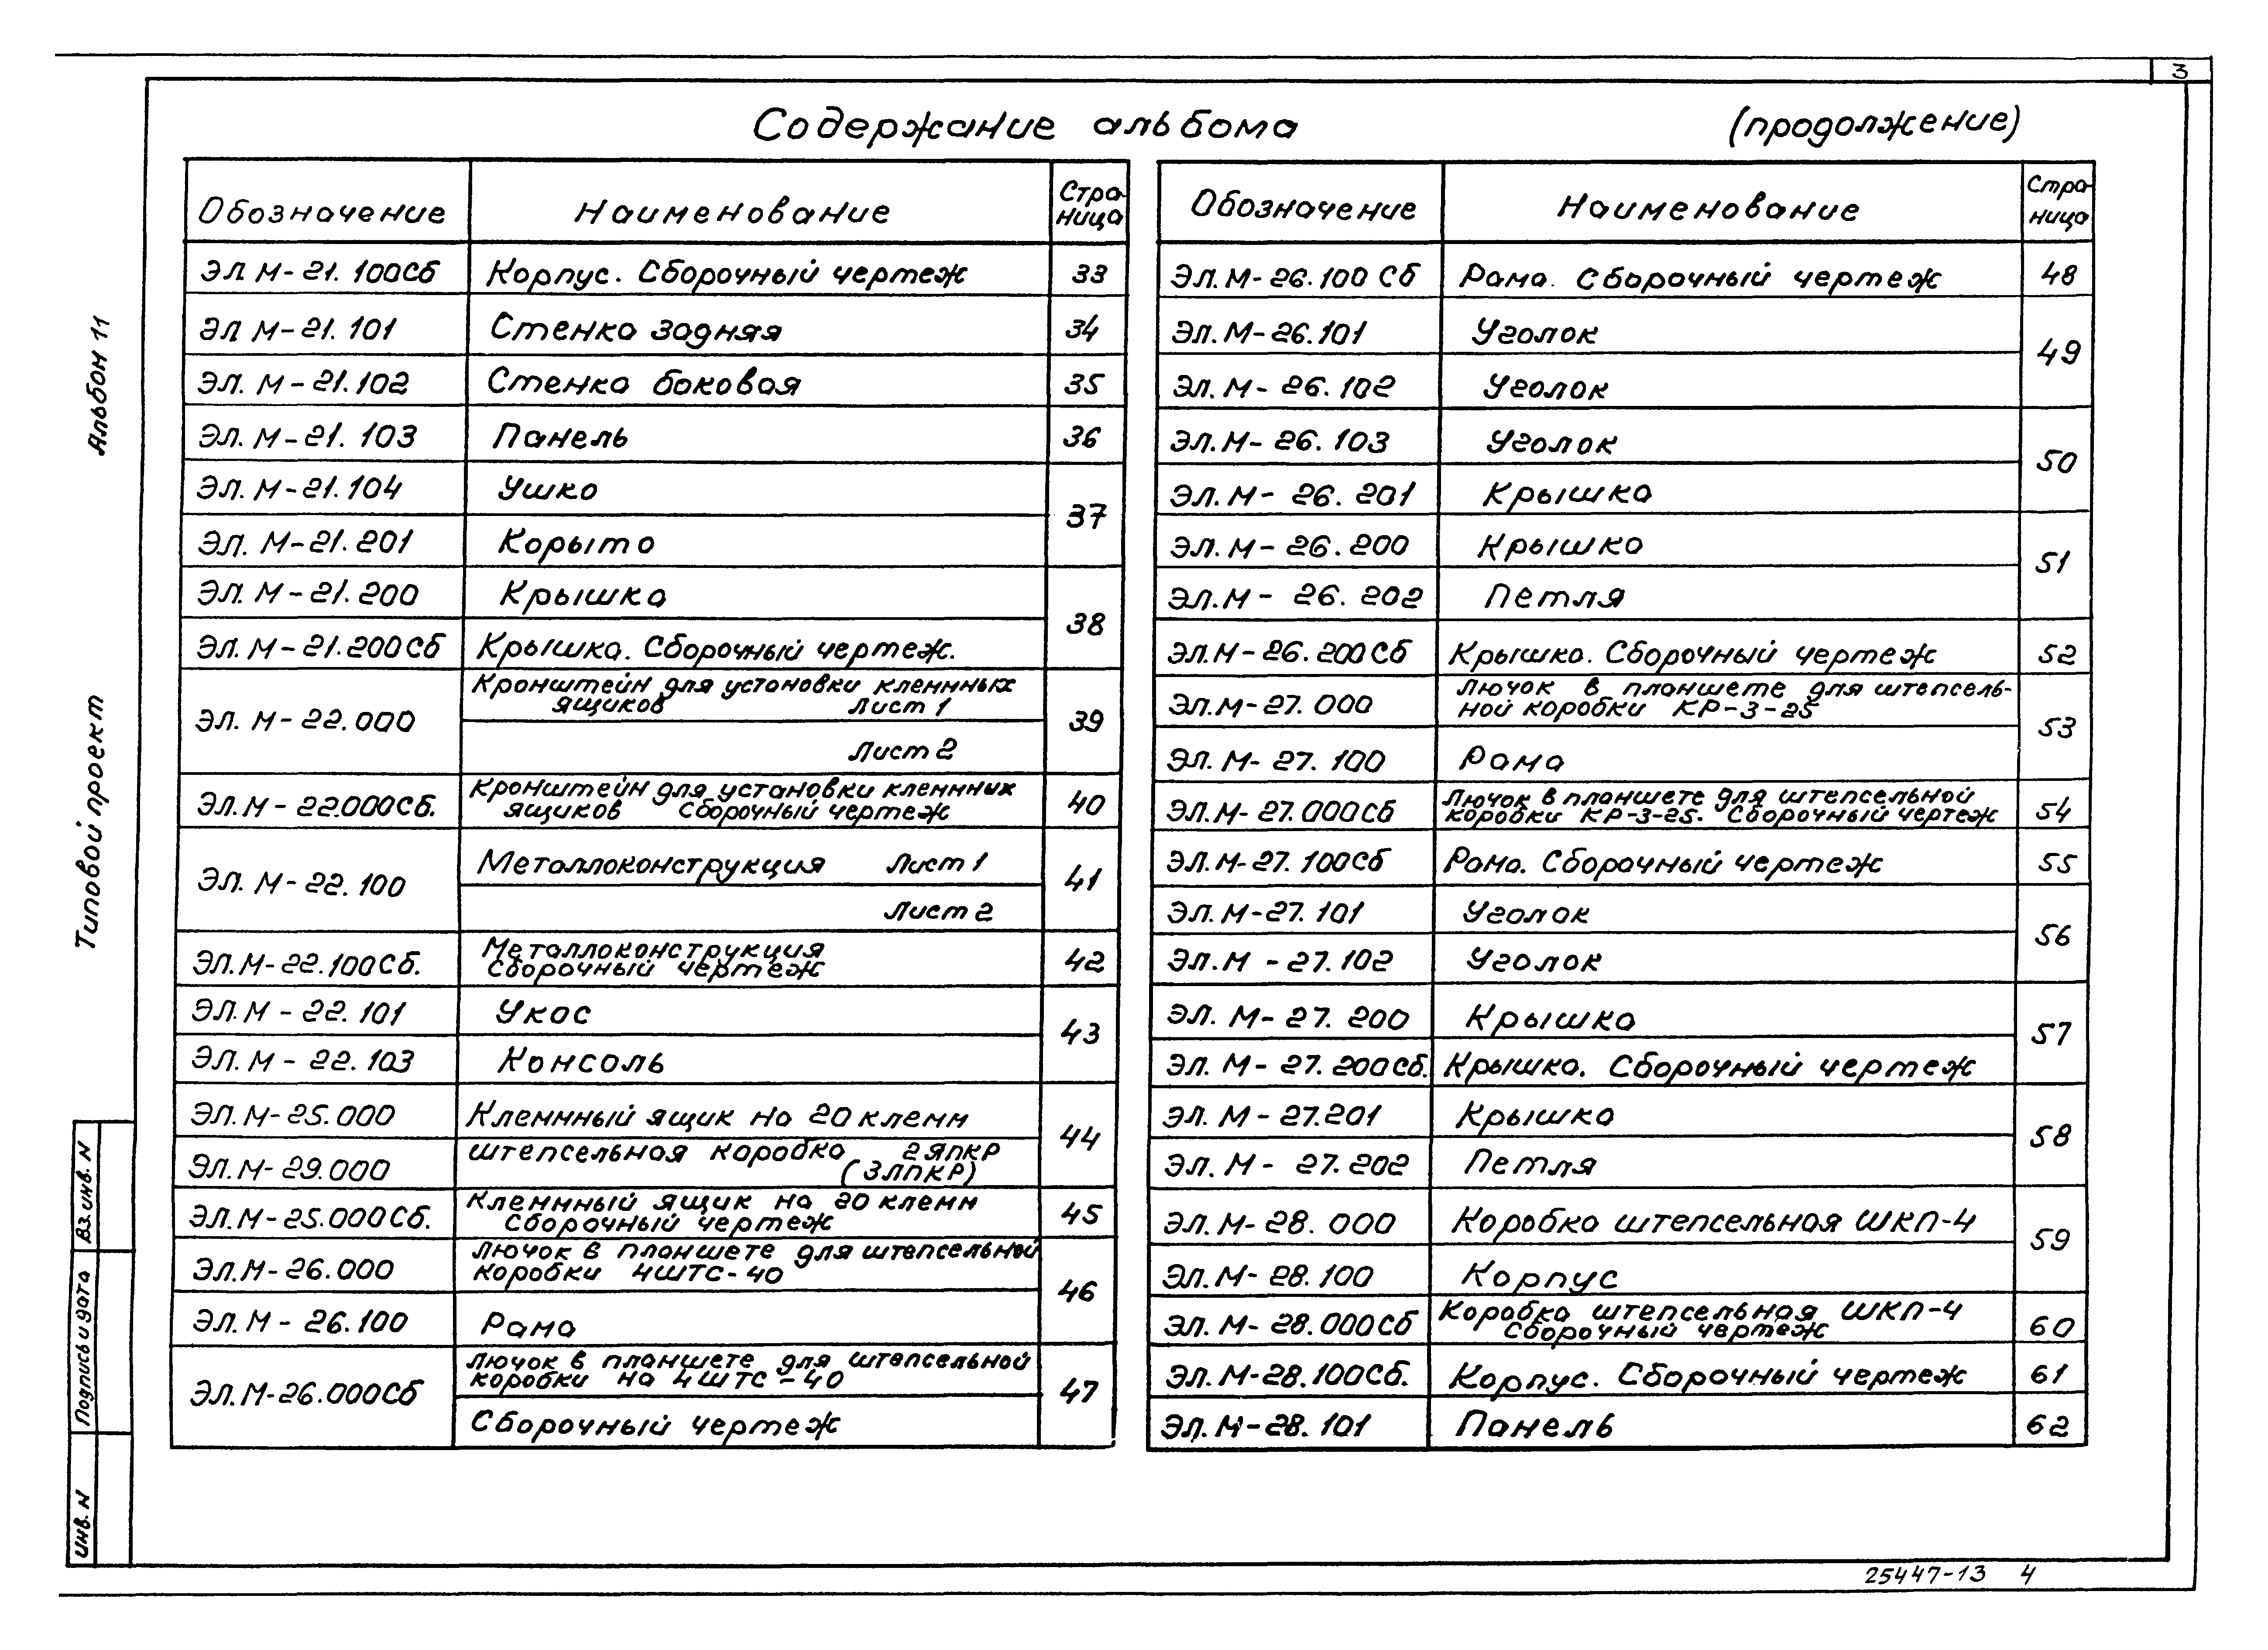 3
Содержание альбома (продолжение)
Обозначение Наименование Стра-
ница
ЭЛ М-21. 100Сб Корпус. Сборочный чертеж 33
ЭЛ М-21. 101 Стенка задняя 34
ЭЛ. М-21.102 Стенка боковая 35
ЭЛ. М-21. 103 Панель 36
ЭЛ. М-21. 104 Ушко 37
ЭЛ. М-21. 201 Корыто
ЭЛ. М-21. 200 Крышка 38
ЭЛ. М-21.200Сб Крышка. Сборочный чертеж.
ЭЛ. М-22.000 Кронштейн для установки клеммных
ящиков Лист 1 39
Лист 2
ЭЛ.М-22.000Сб. Кронштейн для установки клеммных
ящиков Сборочный чертеж 40
ЭЛ. М-22.100 Металлоконструкция Лист 1 41
Лист 2
ЭЛ.М-22.100Сб. Металлоконструкция
Сборочный чертеж 42
ЭЛ.М - 22.101 Укос 43
ЭЛ.М - 22.103 Консоль
ЭЛ.М-25.000 Клеммный ящик на 20 клемм 44
ЭЛ.М-29.000 штепсельная коробка 2ЯПКР
(3ЛПКР)
ЭЛ.М-25.000Сб. Клеммный ящик на 20 клемм
Сборочный чертеж 45
ЭЛ.М-26.000 Лючок в планшете для штепсельной
коробки 4ШТС-40 46
ЭЛ.М - 26.100 Рама
ЭЛ.М-26.000Сб Лючок в планшете для штепсельной
коробки на 4ШТС-40 47
Сборочный чертеж
Обозначение Наименование Стра-
ница
ЭЛ.М-26.100 Сб Рама. Сборочный чертеж 48
ЭЛ.М-26.101 Уголок 49
ЭЛ.М-26.102 Уголок
ЭЛ.М-26.103 Уголок 50
ЭЛ.М-26.201 Крышка
ЭЛ.М-26.200 Крышка 51
ЭЛ.М-26.202 Петля
ЭЛ.М-26.200Сб Крышка. Сборочный чертеж 52
ЭЛ.М-27.000 Лючок в планшете для штепсель-
ной коробки КР-3-25 53
ЭЛ.М-27.100 Рама
ЭЛ.М-27.000Сб Лючок в планшете для штепсельной
коробки КР-3-25. Сборочный чертеж 54
ЭЛ.М-27.100Сб Рама. Сборочный чертеж 55
ЭЛ.М-27.101 Уголок 56
ЭЛ.М -27.102 Уголок
ЭЛ. М-27. 200 Крышка 57
ЭЛ. М-27.200Сб. Крышка. Сборочный чертеж
ЭЛ. М-27.201 Крышка 58
ЭЛ. М-27.202 Петля
ЭЛ.М-28. 000 Коробка штепсельная ШКП-4 59
ЭЛ.М-28.100 Корпус
ЭЛ. М-28.000Сб Коробка штепсельная ШКП-4
Сборочный чертеж 60
ЭЛ.М-28.100Сб. Корпус. Сборочный чертеж 61
ЭЛ.М-28.101 Панель 62
Альбом 11
Типовой проект
Вз.инв. N
Подпись и дата
инв. N
25447-13 4